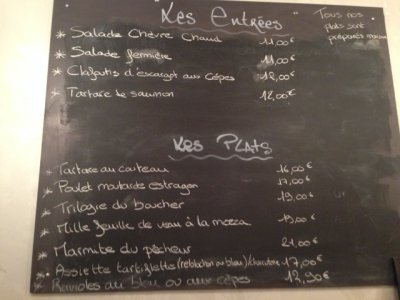 "Les Entrées"
Tous nos
plats sont
préparés maison
* Salade Chèvre Chaud 11,00€
* Salade fermière 11,00€
* Clafoutis d'escargot aux Cèpes 12,00€
* Tartare de saumon 12,00€
Les Plats
* Tartare au couteau 16,00€
* Poulet moutarde estragon 17,00€
* Trilogie du boucher 19,00€
* Mille feuille de veau à la mozza 19,00€
* Marmite du pêcheur 21,00€
* Assiette tartiflette (reblochon ou bleu)/charcuterie 17,00€
* Ravioles au bleu ou aux cèpes 12,90€